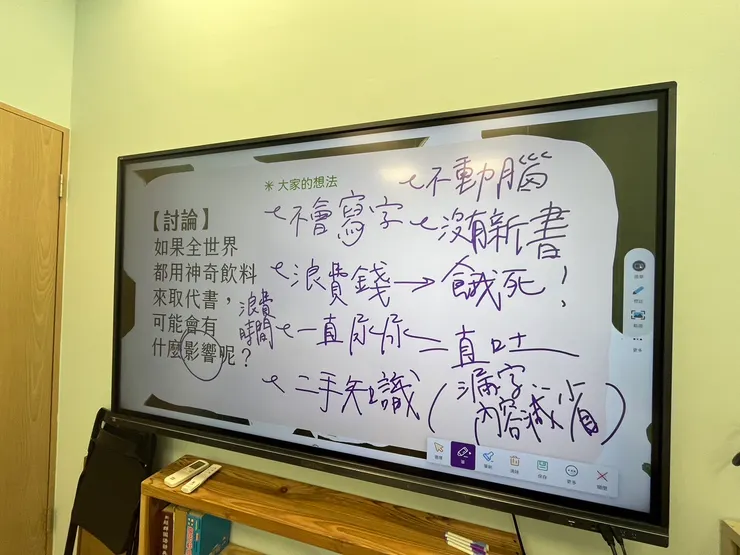 【討論】
如果全世界
都用神奇飲料
來取代書，
可能會有
什麼影響呢？
※ 大家的想法
不動腦
不會寫字
沒有新書
浪費錢→餓死！
浪費
時間
一直尿尿
一直吐
二手知識(漏字
內容減省)
更多